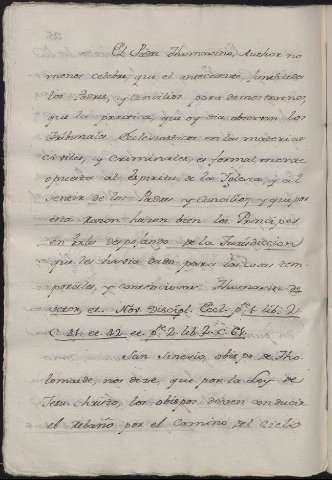 El Padre Thomasino, Author no
menos celebre que el antecedente, fundado en
los Padres, y Concilios para demostrarnos,
que la practica, que oy dia observan los
Tribunales Eclesiasticos en las materias
civiles, y Criminales, es formalmente
opuesto al Espiritu de la Iglesia, y al
sentir de los Padres y Concilios, y que por
esta razon hacen bien los Principes
en irles despojando de la Jurisdiccion
que les havia dado para las cosas tem
porales, y contenciosas. Thomasin. de
veter. et. Nov. Discipl. Eccl. pe. 1. lib. 2
C. 41. et 42 et pe. 2. lib. 2. C. 61.
San Sinesio, obispo de Tho
lomaida, nos dice, que por la Ley de
Jesu Christo, los obispos deven conducir
el rebaño por el camino del Cielo